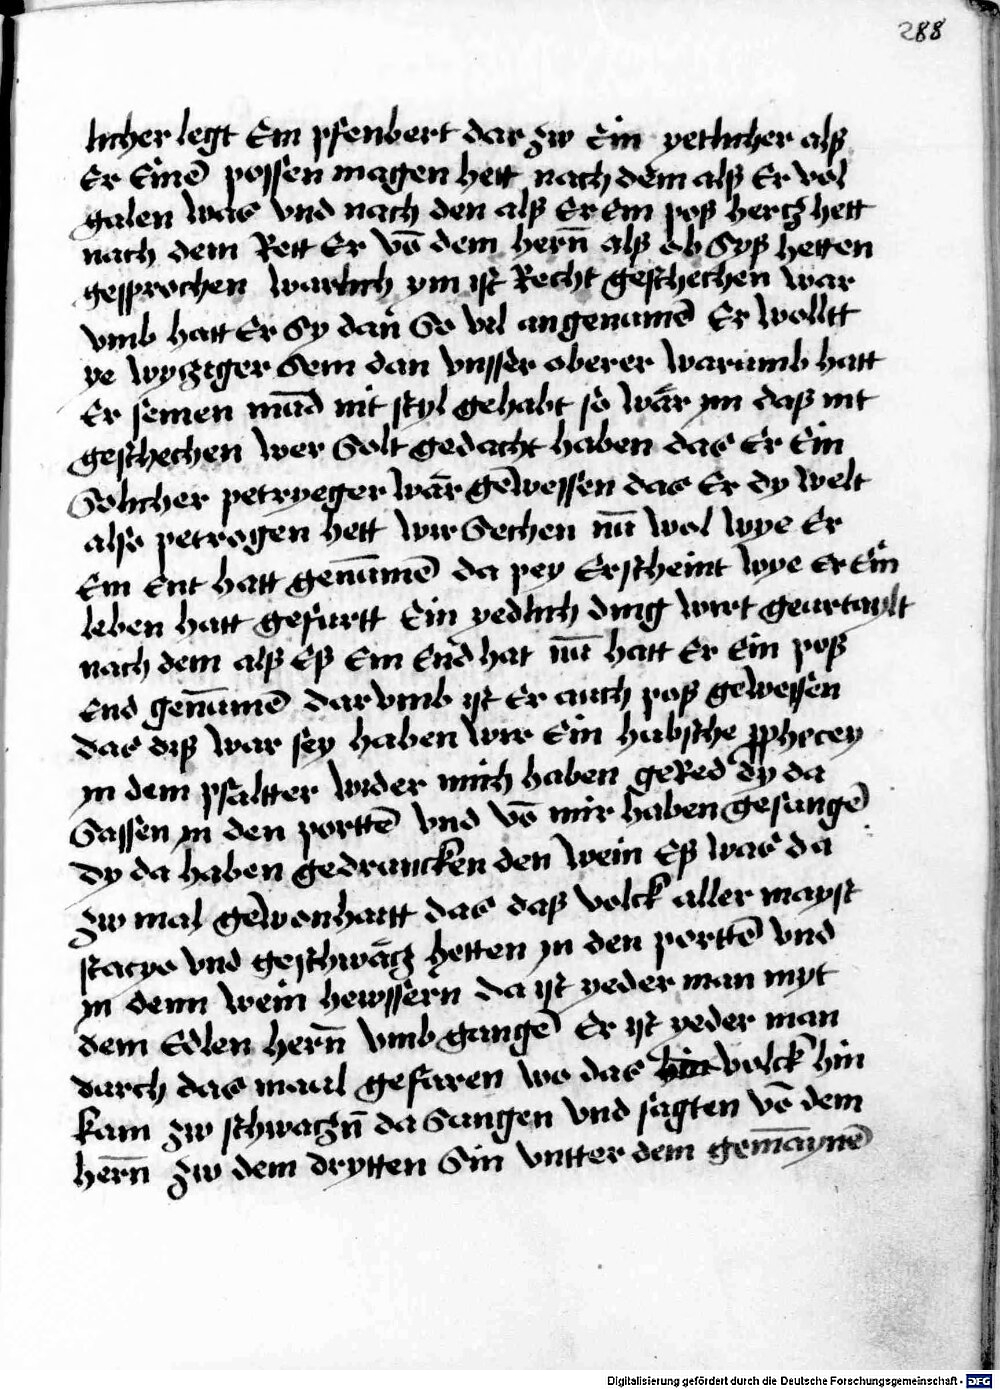 288
licher legt Ein pfenbert dar zw Ein yetlicher alß
Er Einē possen magen hett nach dem alß Er vol
galen was vnd nach den alß Er Ein poß hercz hett
nach dem Rett Er vō dem hern̄ alß ob Syß hetten
gesprochen warlich ym ist Recht geschechen war
vmb hatt Er Sy dan So vil angenumē Er wolltt
ye wyziger Sein dan vnsser oberer warumb hatt
Er seinen mūd nit styl gehabt so wär ym daß nit
geschechen wer Solt gedacht haben das Er Ein
Solicher petryeger wär gewessen das Er dy welt
also petrogen hett wir Sechen nū wol wye Er
Ein Ent hatt genumē da pey Erscheint wye Er Ein
leben hatt gefurtt Ein yedlich ding wirt geurtaylt
nach dem alß Eß Ein End hat nū hatt Er Ein poß
End genumē darvmb ist Er auch poß gewessen
das diß war sey haben wir Ein hubsche pphecey
yn dem psaltter wider mich haben geRed dy da
Sassen yn den porttē vnd vō mir haben gesangē
dy da haben gedruncken den wein Eß was da
zw mal gewonhaitt das daß volck aller mayst
stacyo vnd geschwäcz hetten yn den porttē vnd
yn denn wein hewssern da ist yeder man myt
dem Edlen hern̄ vmb gangē Er ist yeder man
durch das maul gefaren wo das volck hin
kam zw schwaczn̄ da Sangen vnd sagten vō dem
hern̄ zw dem drytten Sin vntter dem gemaynē
Digitalisierung gefördert durch die Deutsche Forschungsgemeinschaft - DFG